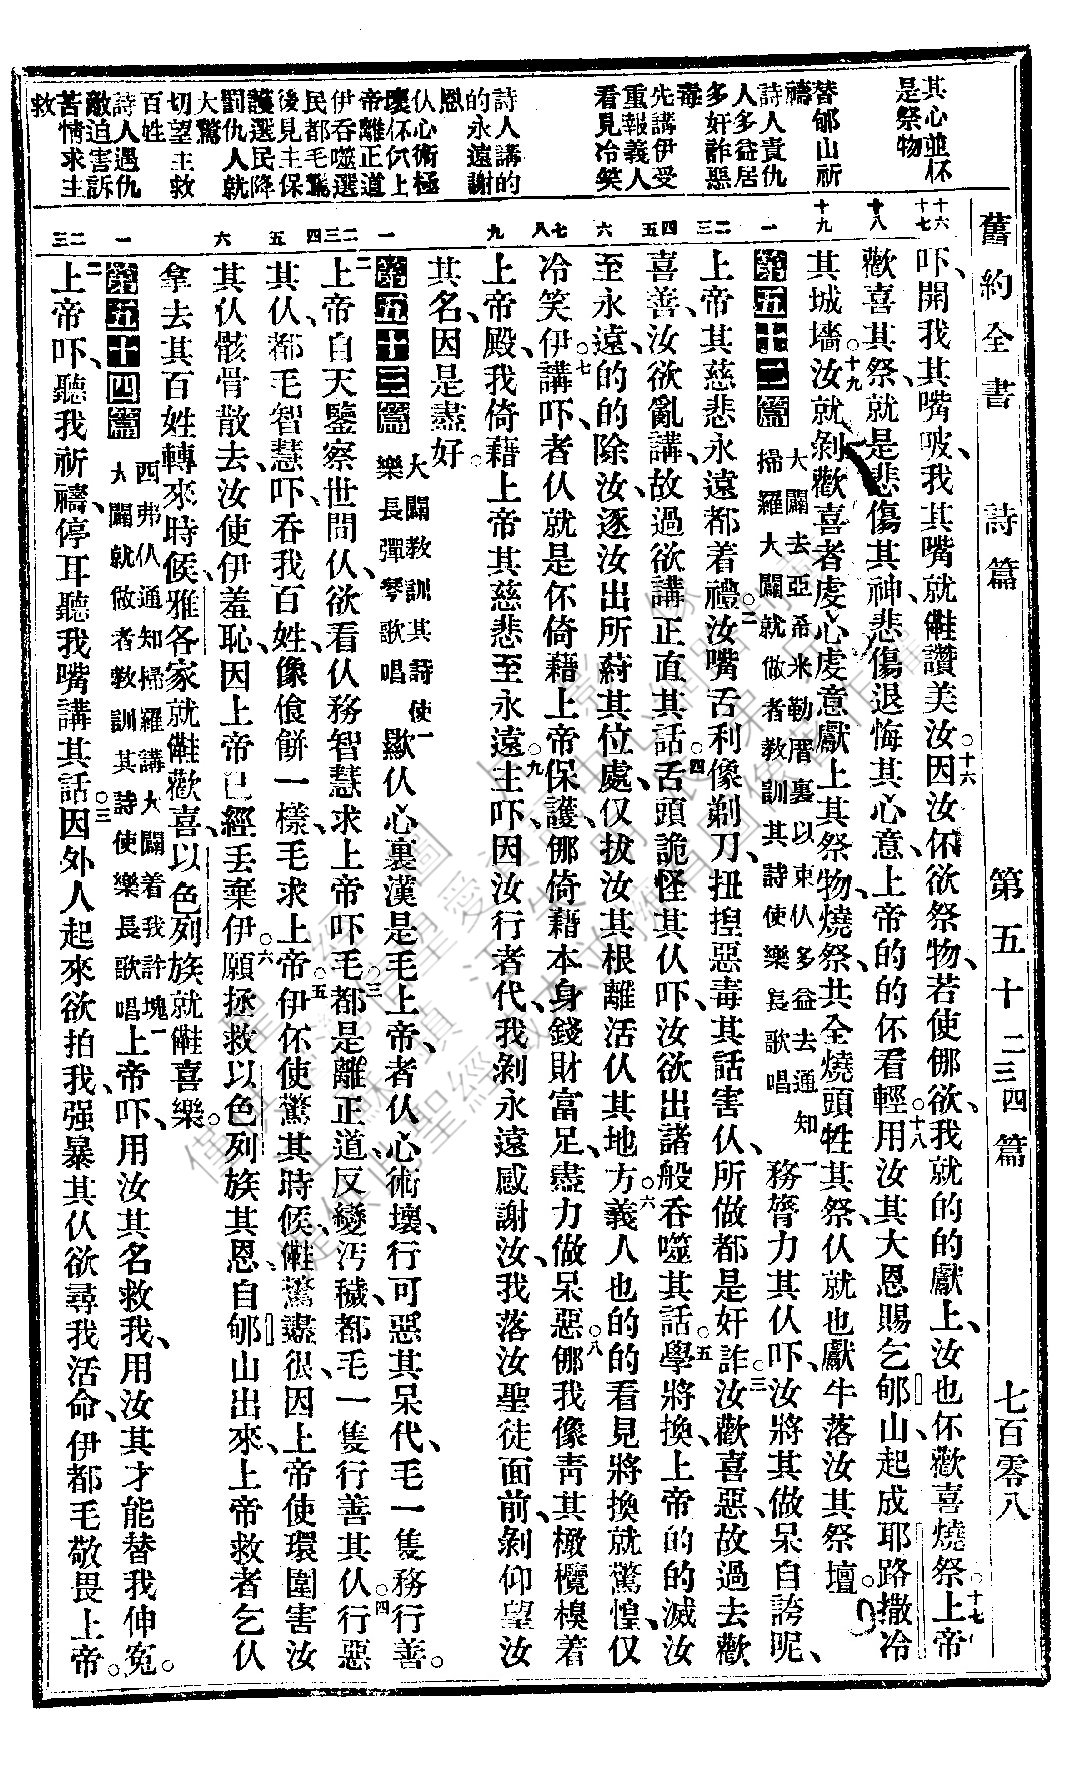 舊約全書 詩篇 第五十二三四篇 七百零八
其心並怀
是祭物
替郇山祈
禱
詩人責仇
人多益居
多奸詐惡
毒
先講伊受
重報義人
看見冷笑
詩人講的
的永遠謝
恩
仈心術極
壞怀仈上
帝離正道
伊吞噬選
民都毛驚
後見主保
護選民降
罰仇人就
大驚
切望主救
百姓
詩人遇仇
敵迫害訴
苦情求主
救
吓、開我其嘴唆、我其嘴就𠆧讚美汝。十六因汝伓欲祭物、若使㑚欲、我就的的獻上、汝也伓歡喜燒祭。十七上帝
歡喜其祭、就是悲傷其神、悲傷退悔其心意、上帝的的伓看輕。十八用汝其大恩賜乞郇山、起成耶路撒冷
其城墻。十九汝就剝歡喜者虔心虔意獻上其祭物、燒祭、共全燒頭牲其祭、仈就也獻牛落汝其祭壇。
第五十二篇 大闢去亞希米勒厝裏以東仈多益去通知
掃羅大闢就做者教訓其詩使樂長歌唱 一務膂力其仈吓、汝將其做呆自誇呢、
上帝其慈悲永遠都着禮。二汝嘴舌利像剃刀、扭捏惡毒其話害仈、所做都是奸詐。三汝歡喜惡、故過去歡
喜善、汝欲亂講、故過欲講正直其話。四舌頭詭怪其仈吓、汝欲出諸般吞噬其話。五學將換、上帝的的滅汝
至永遠、的的除汝、逐汝出所蔚其位處、仅拔汝其根離活仈其地方。六義人也的的看見將換就驚惶、仅
冷笑。七伊講吓、者仈就是伓倚藉上帝保護、㑚倚藉本身錢財富足、盡力做呆惡。八㑚我像靑其橄欖模着
上帝殿、我倚藉上帝其慈悲至永遠。九主吓、因汝行者代、我剝永遠感謝汝、我落汝聖徒面前、剝仰望汝
其名、因是盡好。
第五十三篇 大闢教訓其詩使
樂長彈琴歌唱 一獃仈心裏漢是毛上帝、者仈心術壞、行可惡其呆代、毛一隻務行善。
二上帝自天鑒察世間仈、欲看仈務智慧求上帝吓毛。三都是離正道、反變汚穢、都毛一隻行善。四其仈行惡
其仈、都毛智慧吓、吞我百姓、像飡餅一樣、毛求上帝。五伊伓使驚其時候、𠆧驚盡很、因上帝使環圍害汝
其仈骸骨散去、汝使伊羞恥、因上帝已經丟棄伊。六願拯救以色列族其恩、自郇山出來、上帝救者乞仈
拿去其百姓轉來時候、雅各家就𠆧歡喜、以色列族就𠆧喜樂。
第五十四篇 西弗仈通知掃羅講大闢着我許塊
大闢就做者教訓其詩使樂長歌唱 一上帝吓、用汝其名救我、用汝其才能替我伸冤。
二上帝吓、聽我祈禱、停耳聽我嘴講其話。三因外人起來欲拍我、强暴其仈欲尋我活命、伊都毛敬畏上帝。